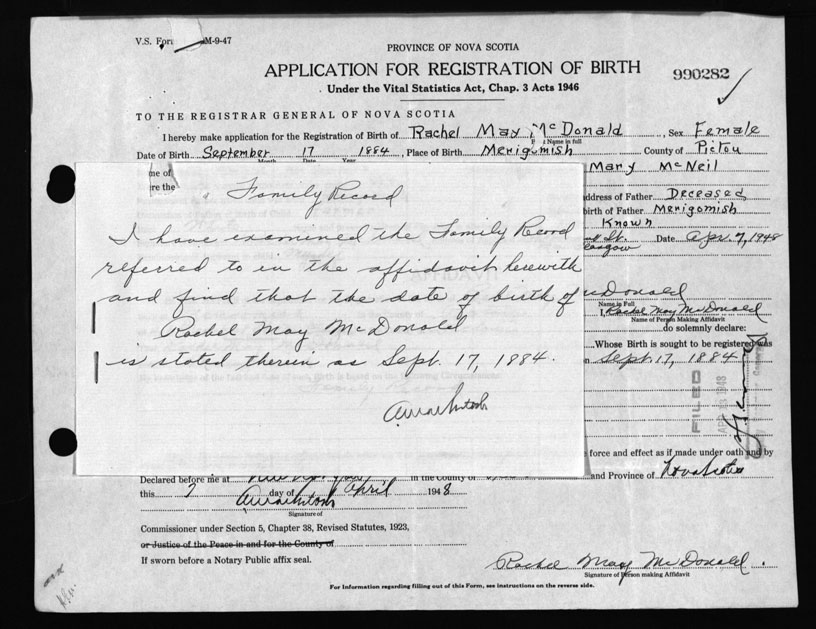 V.S. For M-9-47
PROVINCE OF NOVA SCOTIA
APPLICATION FOR REGISTRATION OF BIRTH
990282
Under the Vital Statistics Act, Chap. 3 Acts 1946
TO THE REGISTRAR GENERAL OF NOVA SCOTIA
I hereby make application for the Registration of Birth of Rachel May McDonald, Sex Female
Name in full
Date of Birth September 17 1884, Place of Birth Merigomish County of Pictou
Month Day Year
me of Mary McNeil
re the
ddress of Father Deceased
birth of Father Merigomish
Known
St. Date Apr. 7, 1948
asgow
Family Record
I have examined the Family Record
referred to in the affidavit herewith
and find that the date of birth of
Rachel May McDonald
is stated therein as Sept. 17, 1884.
cDonald
Name in Full
I, Rachel May McDonald
Name of Person Making Affidavit
do solemnly declare:
Whose Birth is sought to be registered was
on Sept. 17, 1884
FILED
1948
force and effect as if made under oath and by
Declared before me at in the County of and Province of Nova Scotia
this 7 day of April 1948
Signature of
Commissioner under Section 5, Chapter 38, Revised Statutes, 1923,
or Justice of the Peace in and for the County of
If sworn before a Notary Public affix seal.
Rachel May McDonald.
Signature of Person making Affidavit
For Information regarding filling out of this Form, see instructions on the reverse side.